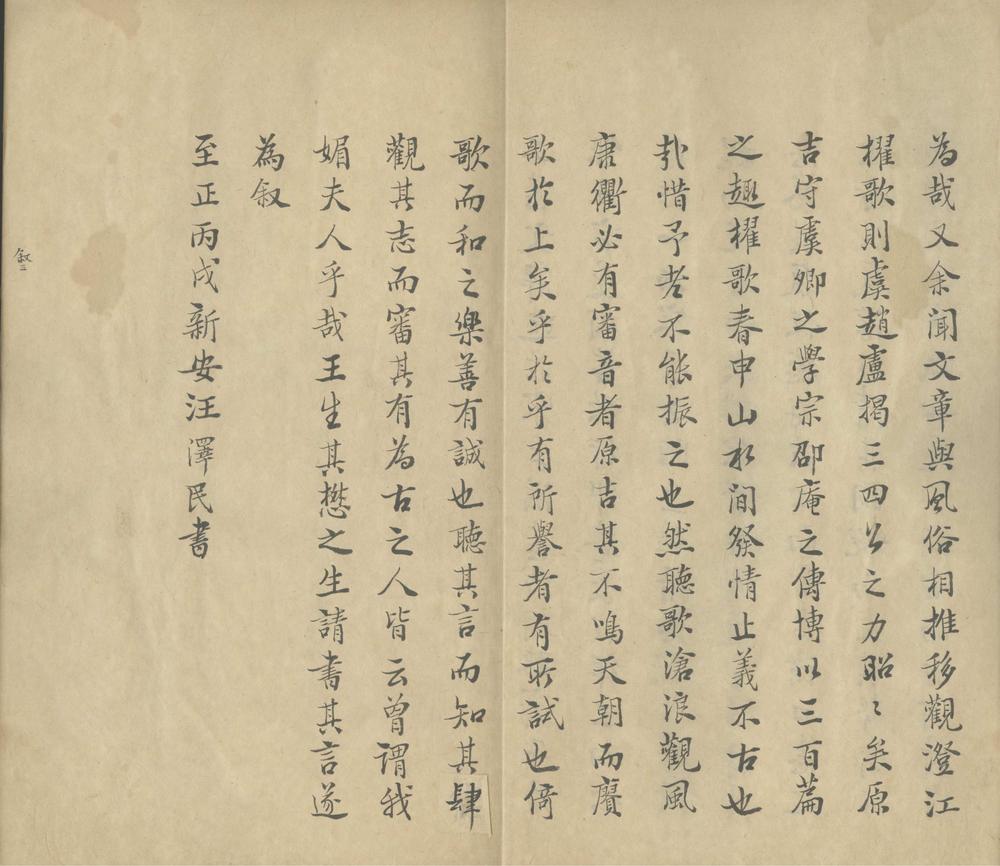 為哉又余聞文章與風俗相推移觀澄江
櫂歌則虞趙盧揭三四公之力昭〻矣原
吉守虞卿之學宗邵庵之傳博以三百篇
之趣櫂歌春申山水間發情止義不古也
乳惜予老不能振之也然聽歌滄浪觀風
康衢必有審音者原吉其不鳴天朝而賡
歌於上矣乎於乎有所譽者有所試也倚
歌而和之樂善有誠也聽其言而知其肆
觀其志而審其有為古之人皆云曾謂我
媚夫人乎哉王生其懋之生請書其言遂
為叙
至正丙戌新安汪澤民書
叙三